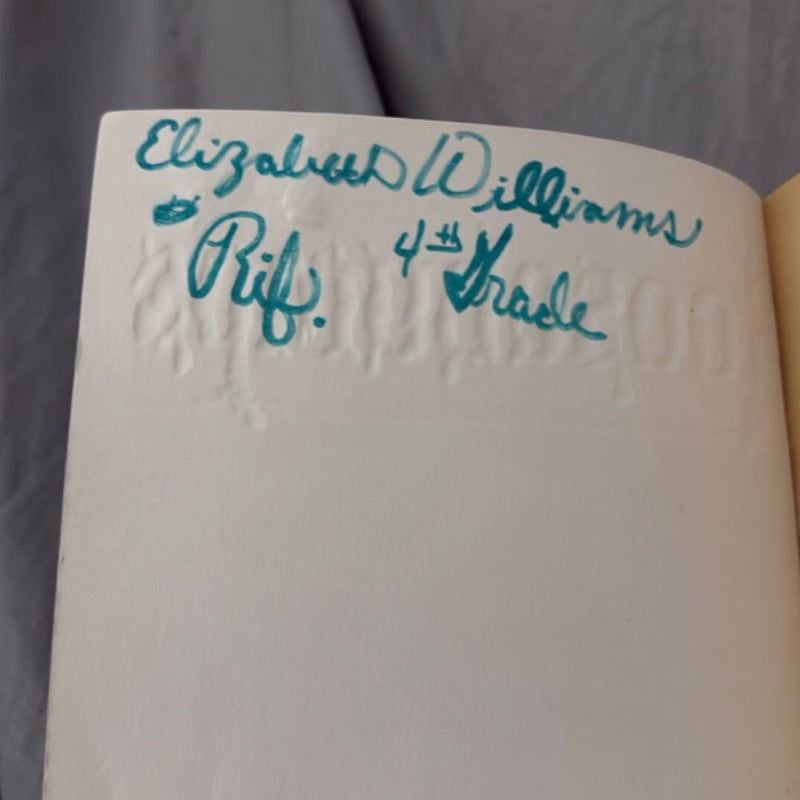 Elizabeth Williams
Rif. 4th Grade